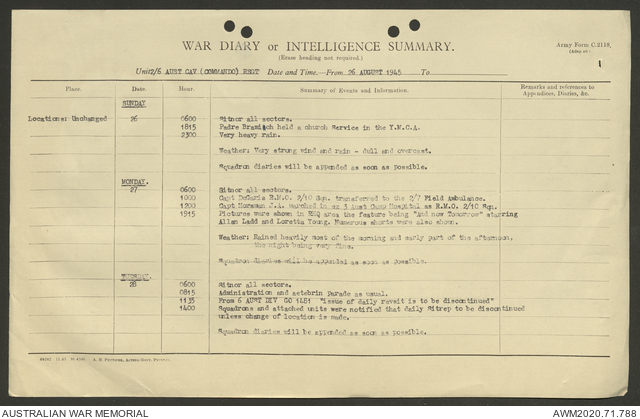 WAR DIARY or INTELLIGENCE SUMMARY.
(Erase heading not required.)
Army Form C.2118.
1
Unit 2/6 AUST CAV (COMMANDO) REGT Date and Time.—From 26 AUGUST 1945 To
Place. Date. Hour. Summary of Events and Information. Remarks and references to Appendices, Diaries, &c.
SUNDAY
Locations: Unchanged 26 0600 Sitnor all sectors.
1815 Padre Bramich held a church Service in the Y.M.C.A.
2300 Very heavy rain.
Weather: Very strong wind and rain - dull and overcast.
Squadron diaries will be appended as soon as possible.
MONDAY.
27 0600 Sitnor all sectors.
1000 Capt DeGaris R.M.O. 2/10 Sqn. transferred to the 2/7 Field Ambulance.
1200 Capt Horsman J.A. marched in ex 3 Aust Camp Hospital as R.M.O. 2/10 Sqn.
1915 Pictures were shown in RHQ area the feature being "And now Tomorrow" starring
Allan Ladd and Loretta Young. Numerous shorts were also shown.
Weather: Rained heavily most of the morning and early part of the afternoon,
the night being very fine.
Squadron diaries will be appended as soon as possible.
TUESDAY
28 0600 Sitnor all sectors.
0815 Administration and aetebrin Parade as usual.
1135 From 6 AUST DIV GO 1481 "issue of daily revsit is to be discontinued"
1400 Squadrons and attached units were notified that daily Sitrep to be discontinued
unless change of location is made.
Squadron diaries will be appended as soon as possible.
AUSTRALIAN WAR MEMORIAL
AWM2020.71.788